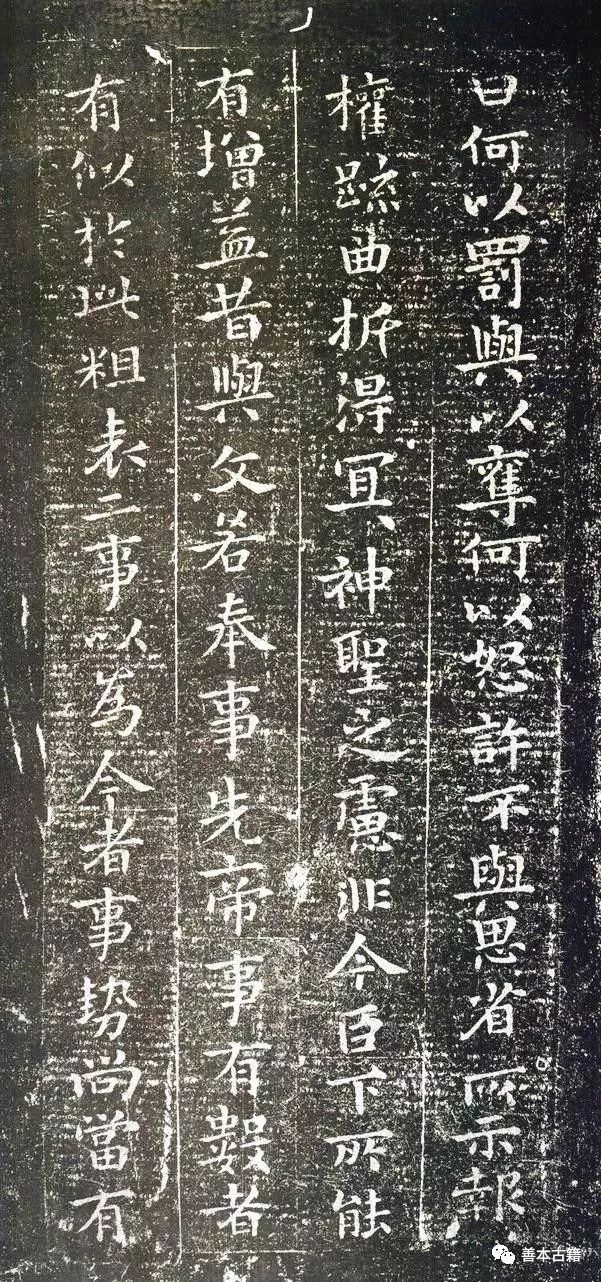 曰何以罰與以奪何以怒許不與思省所示報
權疏曲折得冝、神聖之慮非今臣下所能
有增益昔與文若奉事先帝事有數者
有似於此粗表二事以為今者事勢尚當有
善本古籍